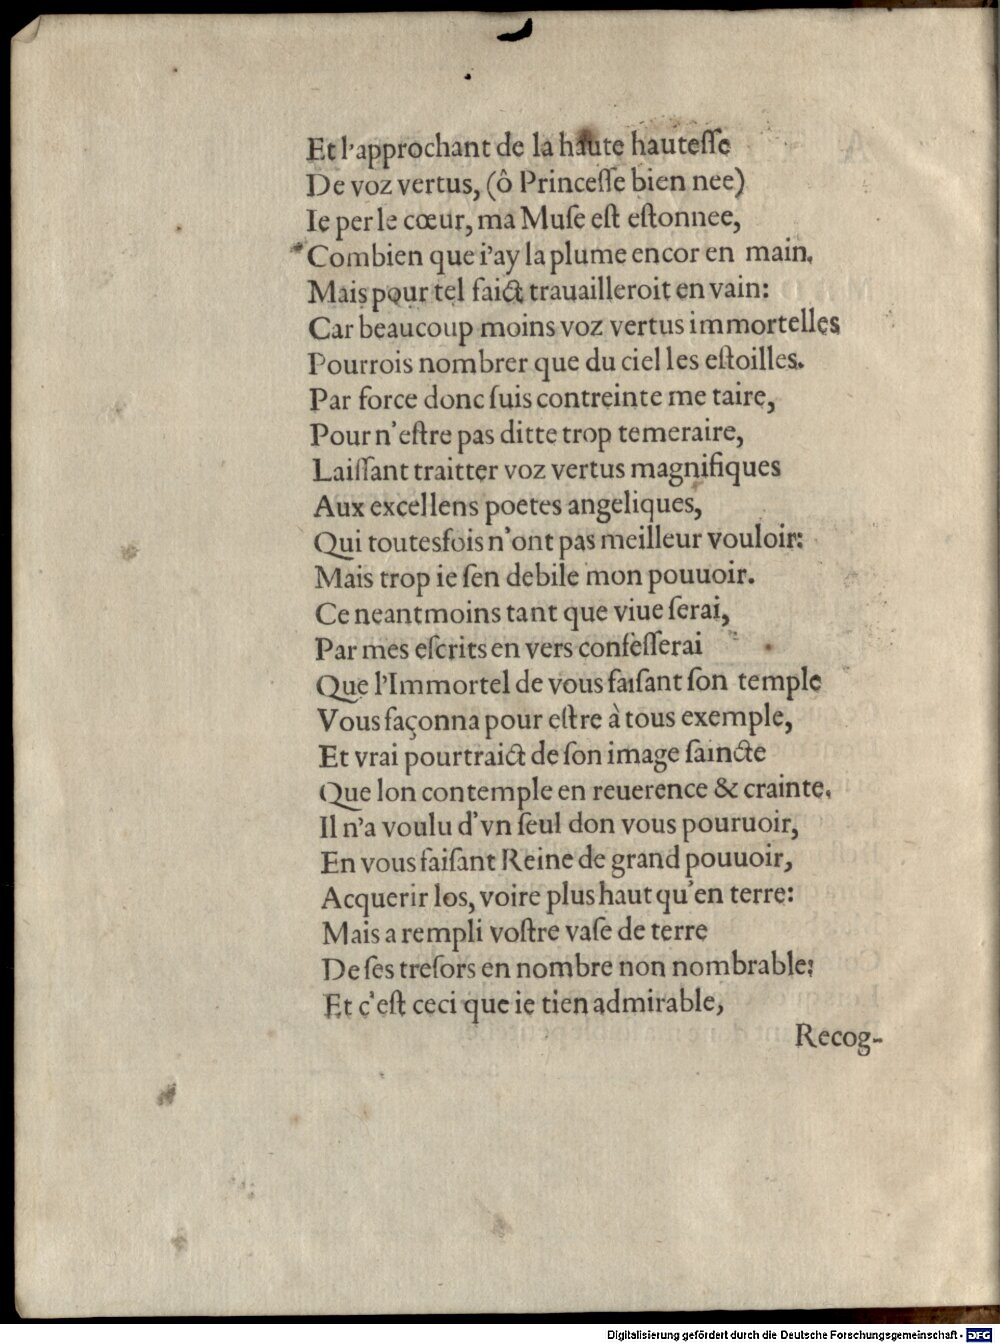 Et l'approchant de la haute hauteſſe
De voz vertus, (ô Princeſſe bien nee)
Ie per le cœur, ma Muſe eſt eſtonnee,
Combien que i'ay la plume encor en main.
Mais pour tel faict trauailleroit en vain:
Car beaucoup moins voz vertus immortelles
Pourrois nombrer que du ciel les eſtoilles.
Par force donc ſuis contreinte me taire,
Pour n'eſtre pas ditte trop temeraire,
Laiſſant traitter voz vertus magnifiques
Aux excellens poetes angeliques,
Qui toutesfois n'ont pas meilleur vouloir:
Mais trop ie ſen debile mon pouuoir.
Ce neantmoins tant que viue ſerai,
Par mes eſcrits en vers confeſſerai
Que l'Immortel de vous faiſant ſon temple
Vous façonna pour eſtre à tous exemple,
Et vrai pourtraict de ſon image ſaincte
Que lon contemple en reuerence & crainte.
Il n'a voulu d'vn ſeul don vous pouruoir,
En vous faiſant Reine de grand pouuoir,
Acquerir los, voire plus haut qu'en terre:
Mais a rempli voſtre vaſe de terre
De ſes treſors en nombre non nombrable:
Et c'eſt ceci que ie tien admirable,
Recog-
Digitalisierung gefördert durch die Deutsche Forschungsgemeinschaft - DFG